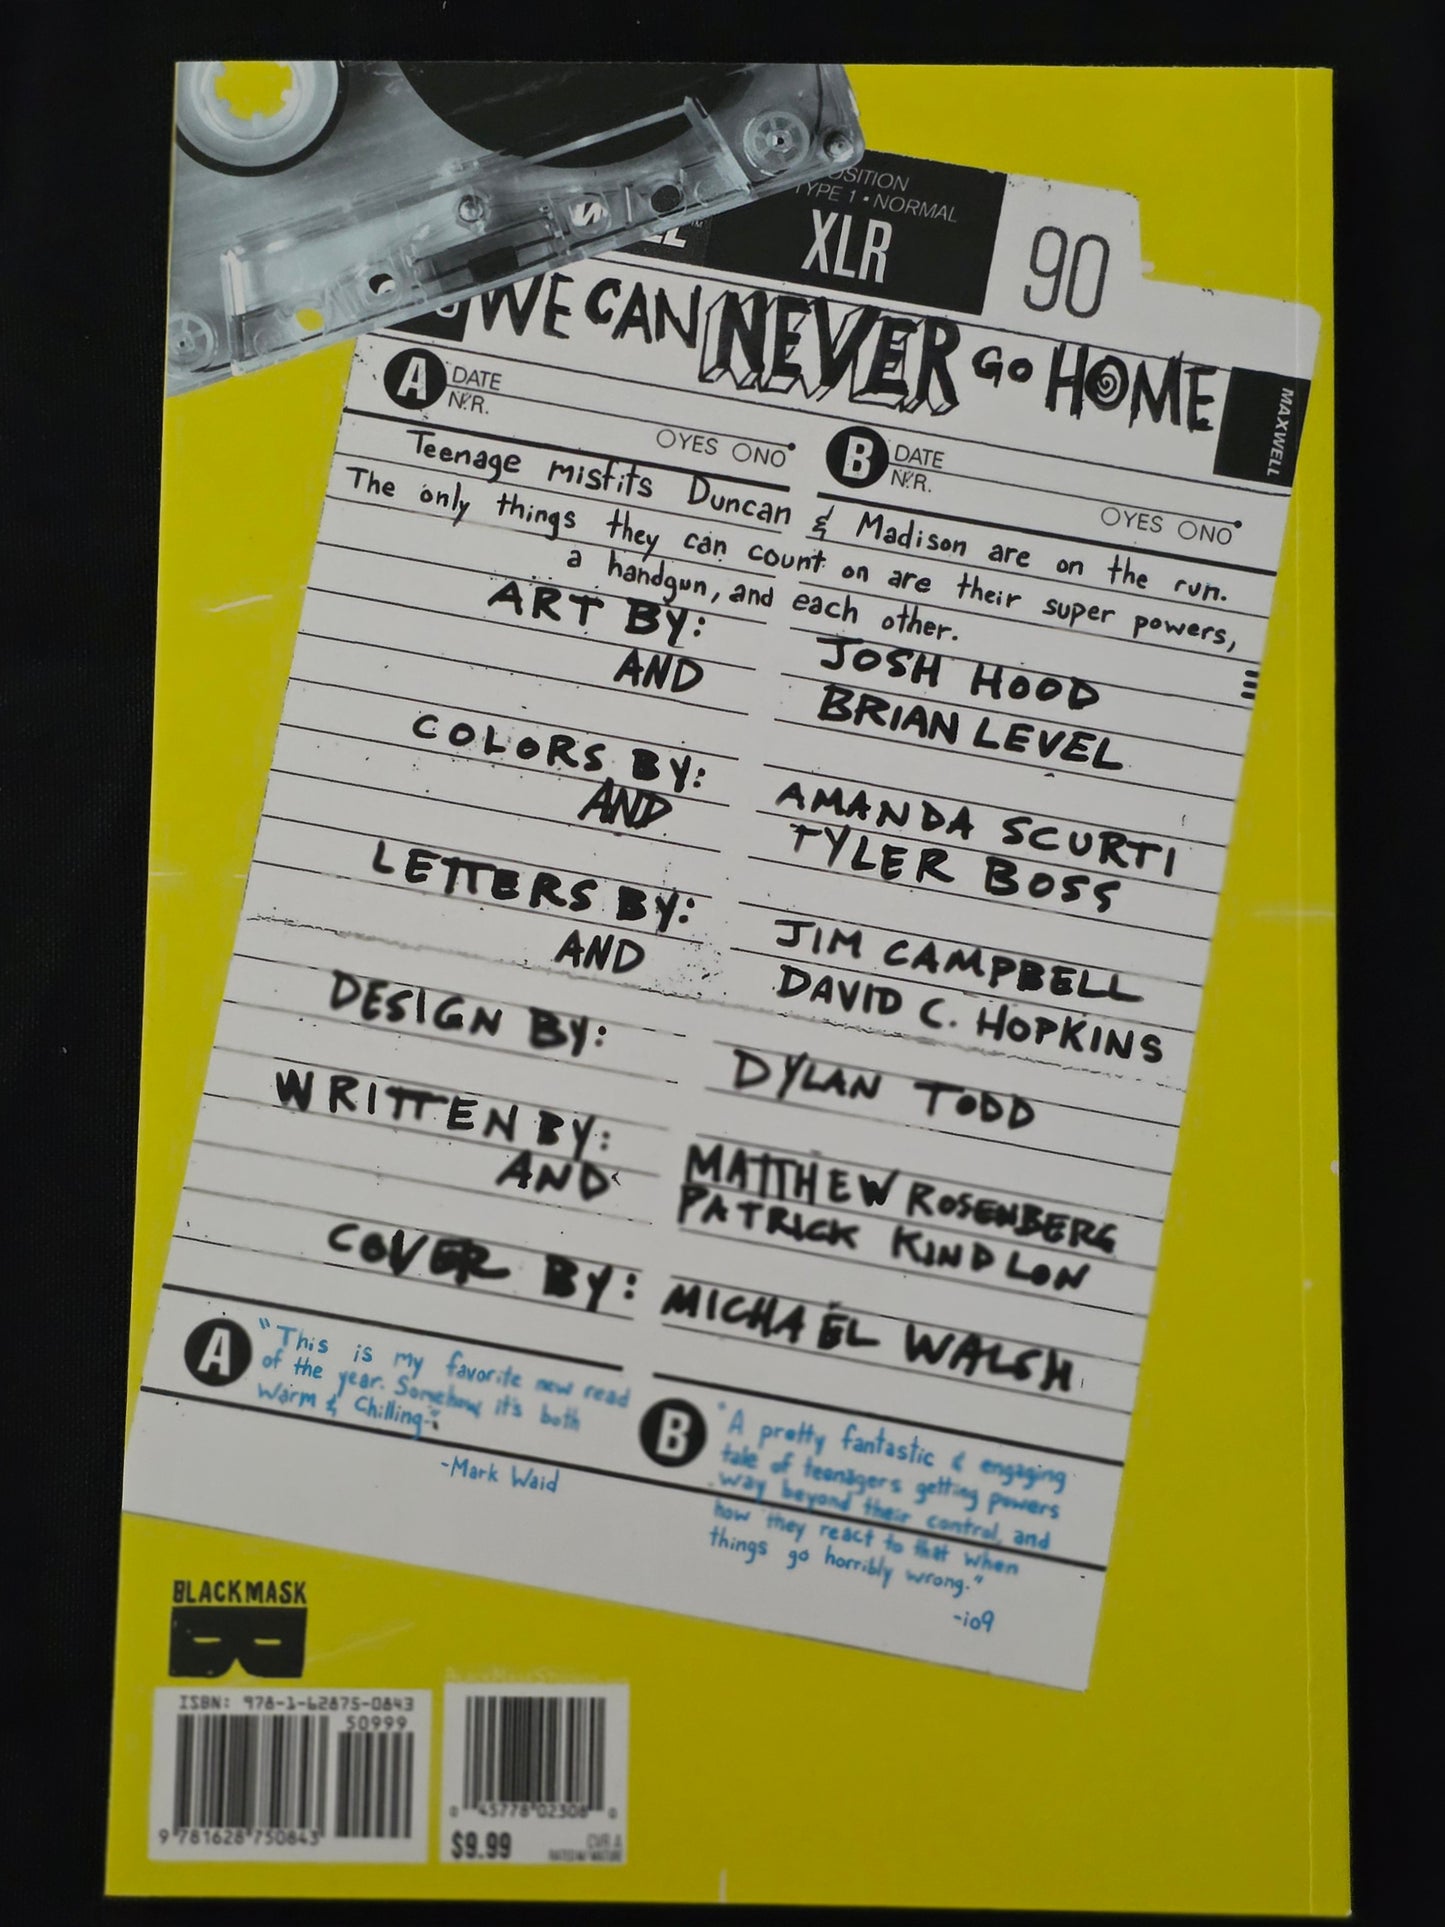 OSITION
TYPE 1 • NORMAL
XLR
90
WE CAN NEVER GO HOME
MAXWELL
A DATE
N.R.
YES NO
B DATE
N.R.
YES NO
Teenage misfits Duncan & Madison are on the run.
The only things they can count on are their super powers,
a handgun, and each other.
ART BY: JOSH HOOD
AND BRIAN LEVEL
COLORS BY: AMANDA SCURTI
AND TYLER BOSS
LETTERS BY: JIM CAMPBELL
AND DAVID C. HOPKINS
DESIGN BY: DYLAN TODD
WRITTEN BY: MATTHEW ROSENBERG
AND PATRICK KINDLON
COVER BY: MICHAEL WALSH
A
"This is my favorite new read
of the year. Somehow it's both
Warm & Chilling."
-Mark Waid
B
"A pretty fantastic & engaging
tale of teenagers getting powers
way beyond their control, and
how they react to that when
things go horribly wrong."
-io9
BLACK MASK
ISBN: 978-1-62875-0843
50999
9 781628 750843
0 45778 02308 0
$9.99
CVR A
RATED M/MATURE